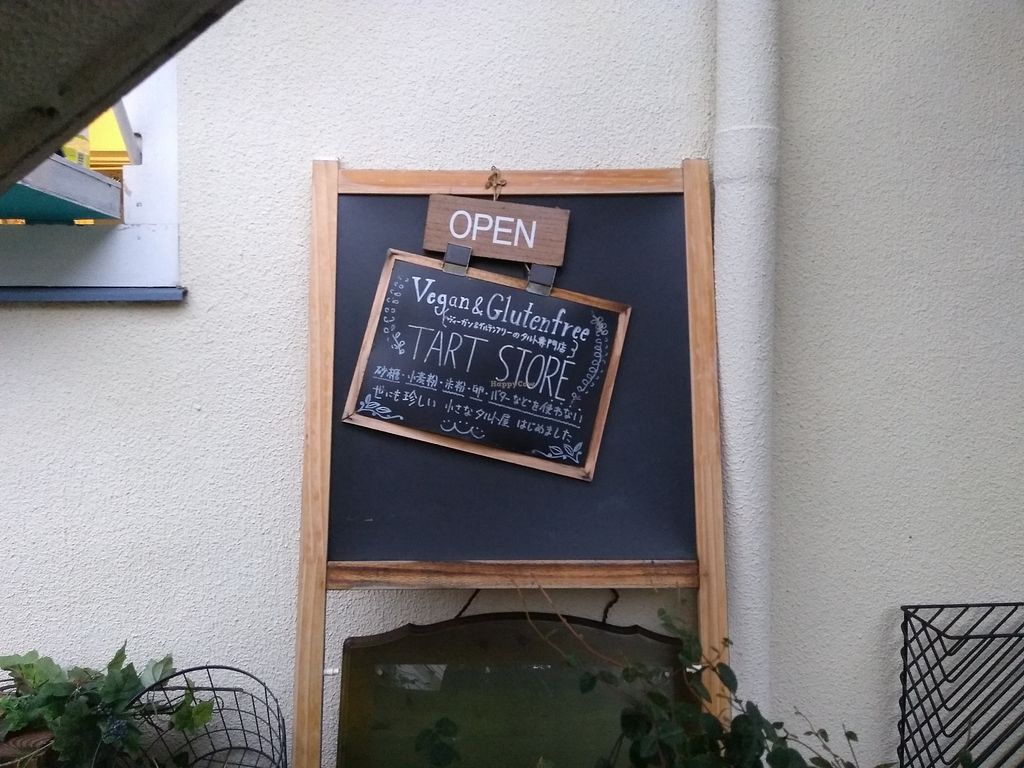 OPEN
Vegan & Glutenfree
(ヴィーガン&グルテンフリーのタルト専門店)
TART STORE
砂糖・小麦粉・米粉・卵・バターなどを使わない
世にも珍しい 小さなタルト屋 はじめました
HappyCow